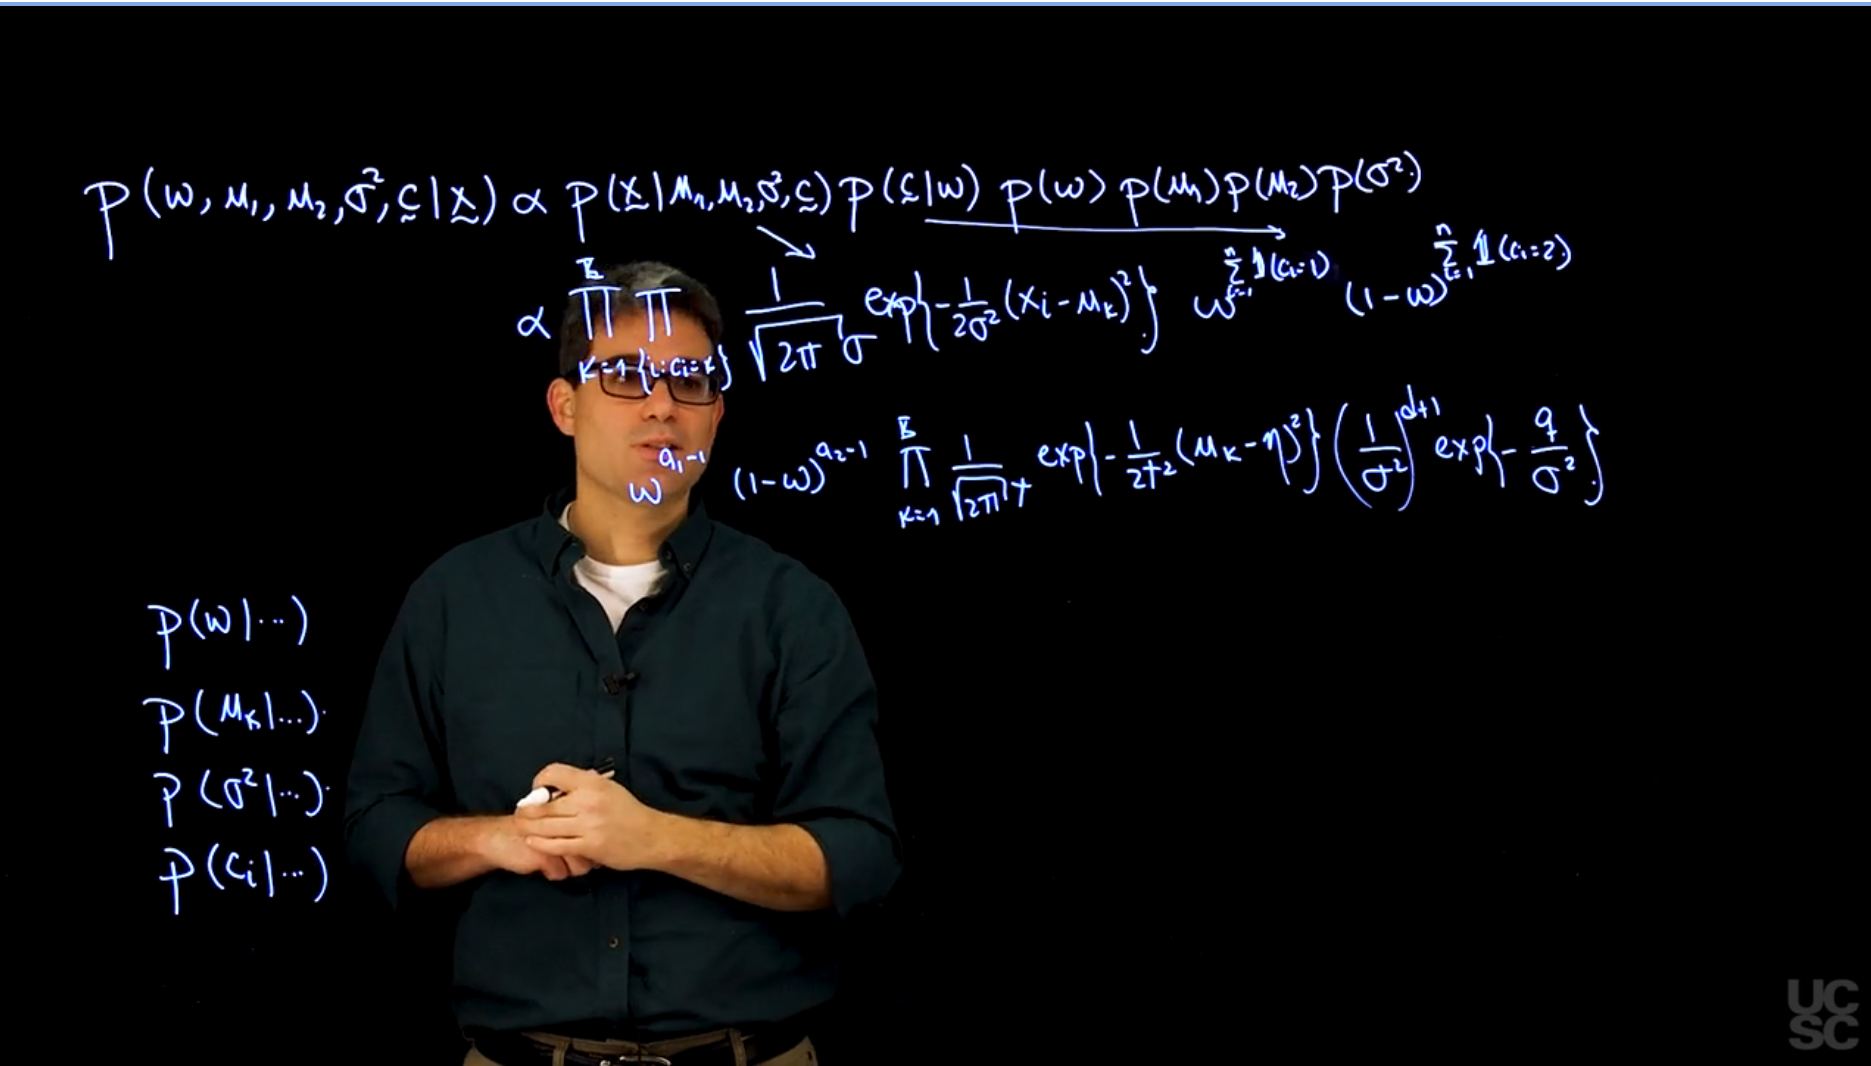 p(w, μ₁, μ₂, σ², c̰ | x̰) ∝ p(x̰ | μ₁, μ₂, σ², c̰) p(c̰ | w) p(w) p(μ₁) p(μ₂) p(σ²)
∝ ∏_{k=1}^{K} ∏_{{i:cᵢ=k}} 1/(√(2π) σ) exp{-1/(2σ²) (xᵢ - μₖ)²} w^{∑_{i=1}^{n} 𝟙(cᵢ=1)} (1-w)^{∑_{i=1}^{n} 𝟙(cᵢ=2)}
w^{a₁-1} (1-w)^{a₂-1} ∏_{k=1}^{K} 1/(√(2π) τ) exp{-1/(2τ²) (μₖ - η)²} (1/σ²)^{d+1} exp{-q/σ²}
p(w | ...)
p(μₖ | ...)
p(σ² | ...)
p(cᵢ | ...)
UC
SC